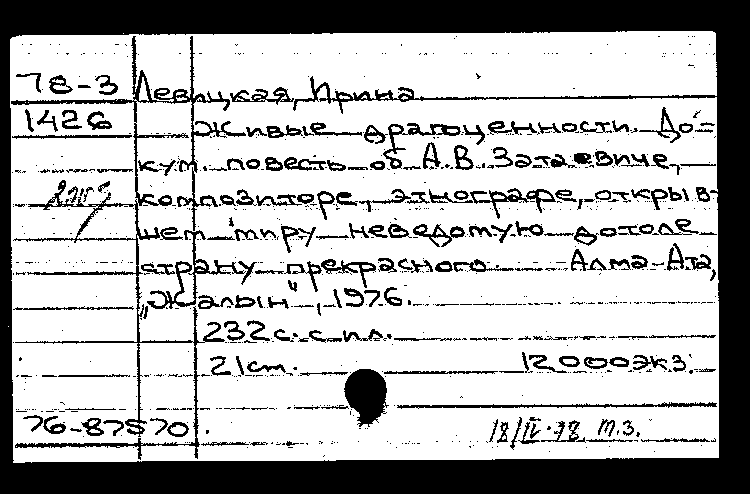 78-3 Левицкая, Ирина.
1426 Живые драгоценности. До-
кум. повесть об А.В. Затаевиче,
композиторе, этнографе, открыв-
шем миру неведомую дотоле
страну прекрасного. Алма-Ата,
"Жалын", 1976.
232 с. с ил.
21 см. 12000 экз.
76-87570. 18/IV-78 т.з.